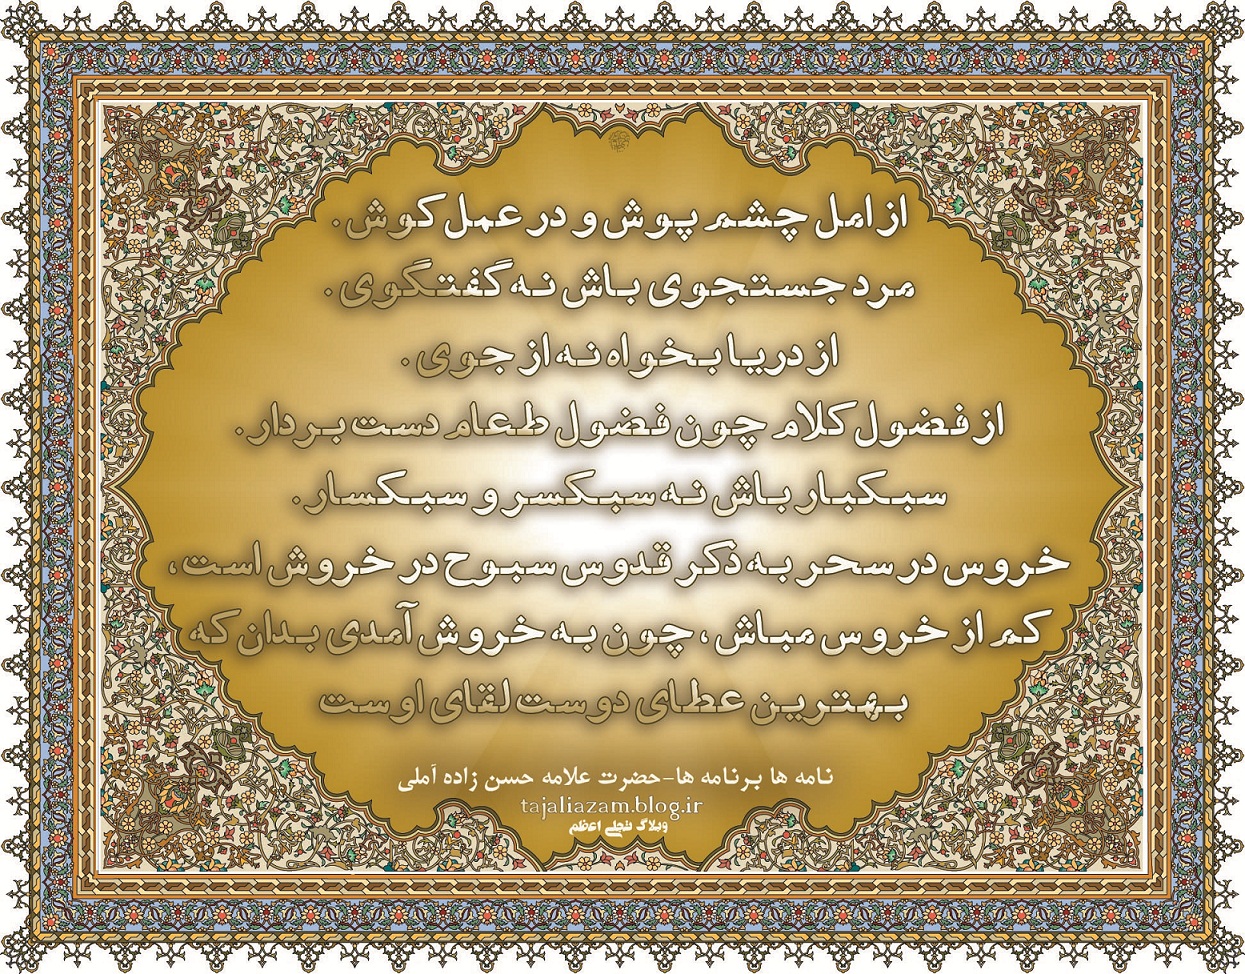 از امل چشم پوش و در عمل کوش.
مرد جستجوی باش نه گفتگوی.
از دریا بخواه نه از جوی.
از فضول کلام چون فضول طعام دست بردار.
سبکبار باش نه سبکسر و سبکسار.
خروس در سحر به ذکر قدوس سبوح در خروش است،
کم از خروس مباش، چون به خروش آمدی بدان که
بهترین عطای دوست لقای اوست
نامه ها برنامه ها-حضرت علامه حسن زاده آملی
tajaliazam.blog.ir
وبلاگ تجلی اعظم